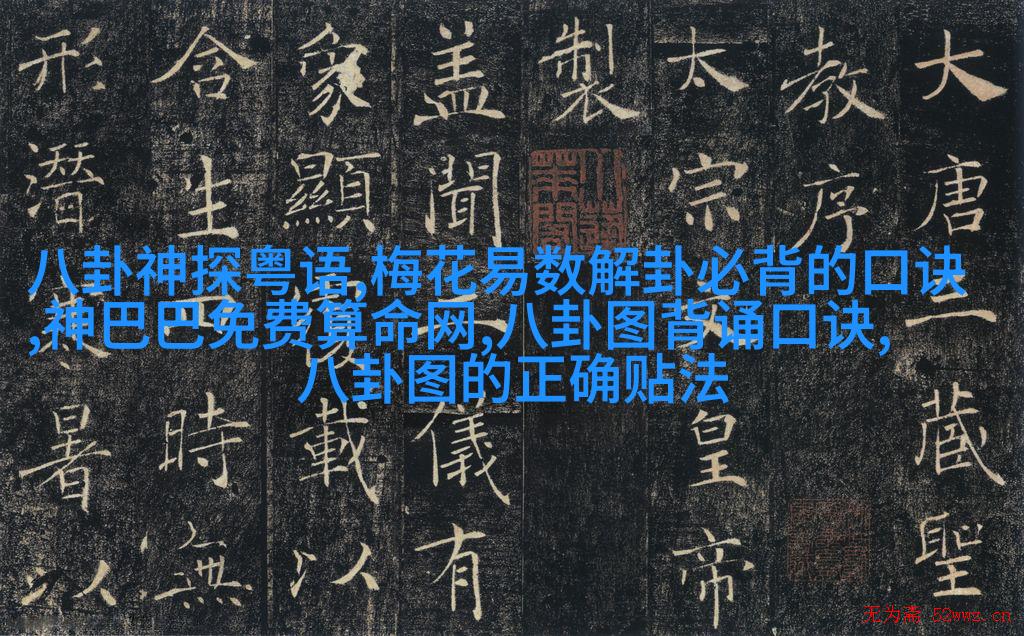 大唐三藏聖
教序
太宗皇帝
製
盖聞二儀有
象顯覆載以
含生四時無
形潛暑以
八卦神探粤语,梅花易数解卦必背的口诀
,神巴巴免费算命网,八卦图背诵口诀,
八卦图的正确贴法
无为斋 52wwz.cn